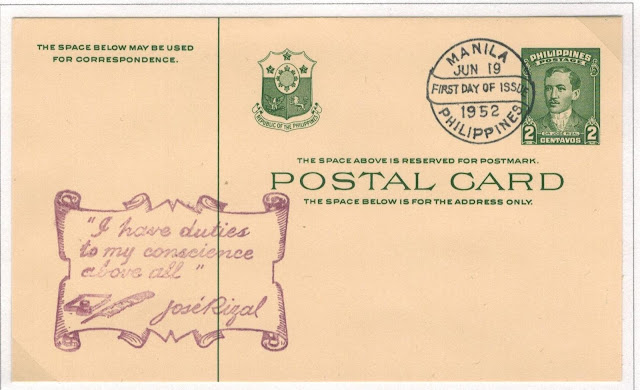 THE SPACE BELOW MAY BE USED
FOR CORRESPONDENCE.
REPUBLIC OF THE PHILIPPINES
MANILA
JUN 19
FIRST DAY OF ISSUE
1952
PHILIPPINES
PHILIPPINES
POSTAGE
DR. JOSE RIZAL
2 CENTAVOS 2
THE SPACE ABOVE IS RESERVED FOR POSTMARK.
POSTAL CARD
THE SPACE BELOW IS FOR THE ADDRESS ONLY.
"I have duties
to my conscience
above all"
José Rizal